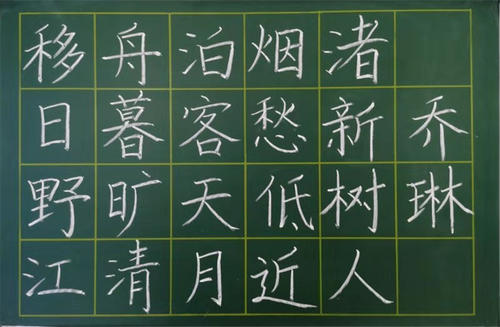 移舟泊烟渚
日暮客愁新
野旷天低树
江清月近人
乔琳